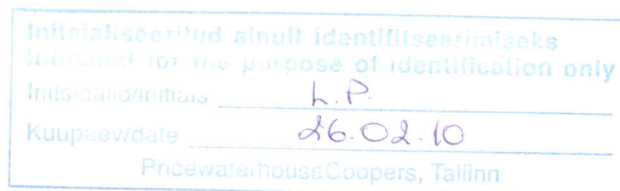 Initsialiseeritud ainult identifitseerimiseks
Initialled for the purpose of identification only
Initsiaalid/initials L.P.
Kuupäev/date 26.02.10
PricewaterhouseCoopers, Tallinn